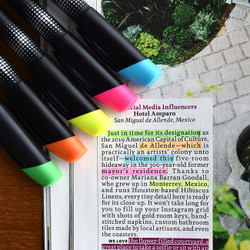 Social Media Influencers
Hotel Amparo
San Miguel de Allende, Mexico
Just in time for its designation as
the 2019 American Capital of Culture,
San Miguel de Allende—which is
practically an artists' colony unto
itself—welcomed this five-room
hideaway in the 300-year-old former
mayor's residence. Thanks to
co-owner Mariana Barran Goodall,
who grew up in Monterrey, Mexico,
and runs Houston-based Hibiscus
Linens, every tiny detail here is ready
for its close-up. It won't take long for
you to fill up your Instagram grid
with shots of gold room keys, hand-
stitched napkins, custom bathroom
tiles made by local artisans, and even
the coasters.
we love The flower-filled courtyard, a
great place to take a selfie or sit with an